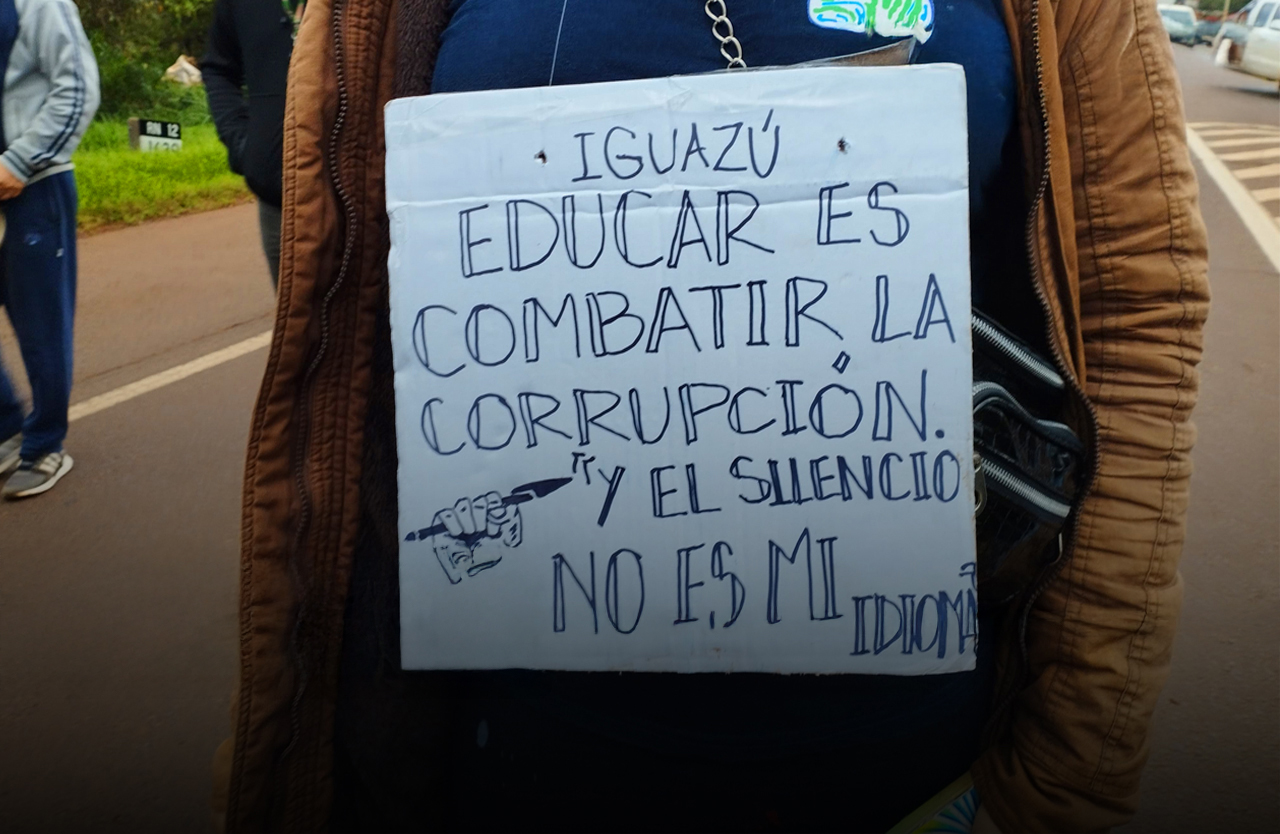 RN 12
IGUAZÚ
EDUCAR ES
COMBATIR LA
CORRUPCIÓN.
"Y EL SILENCIO
NO ES MI
IDIOMA"